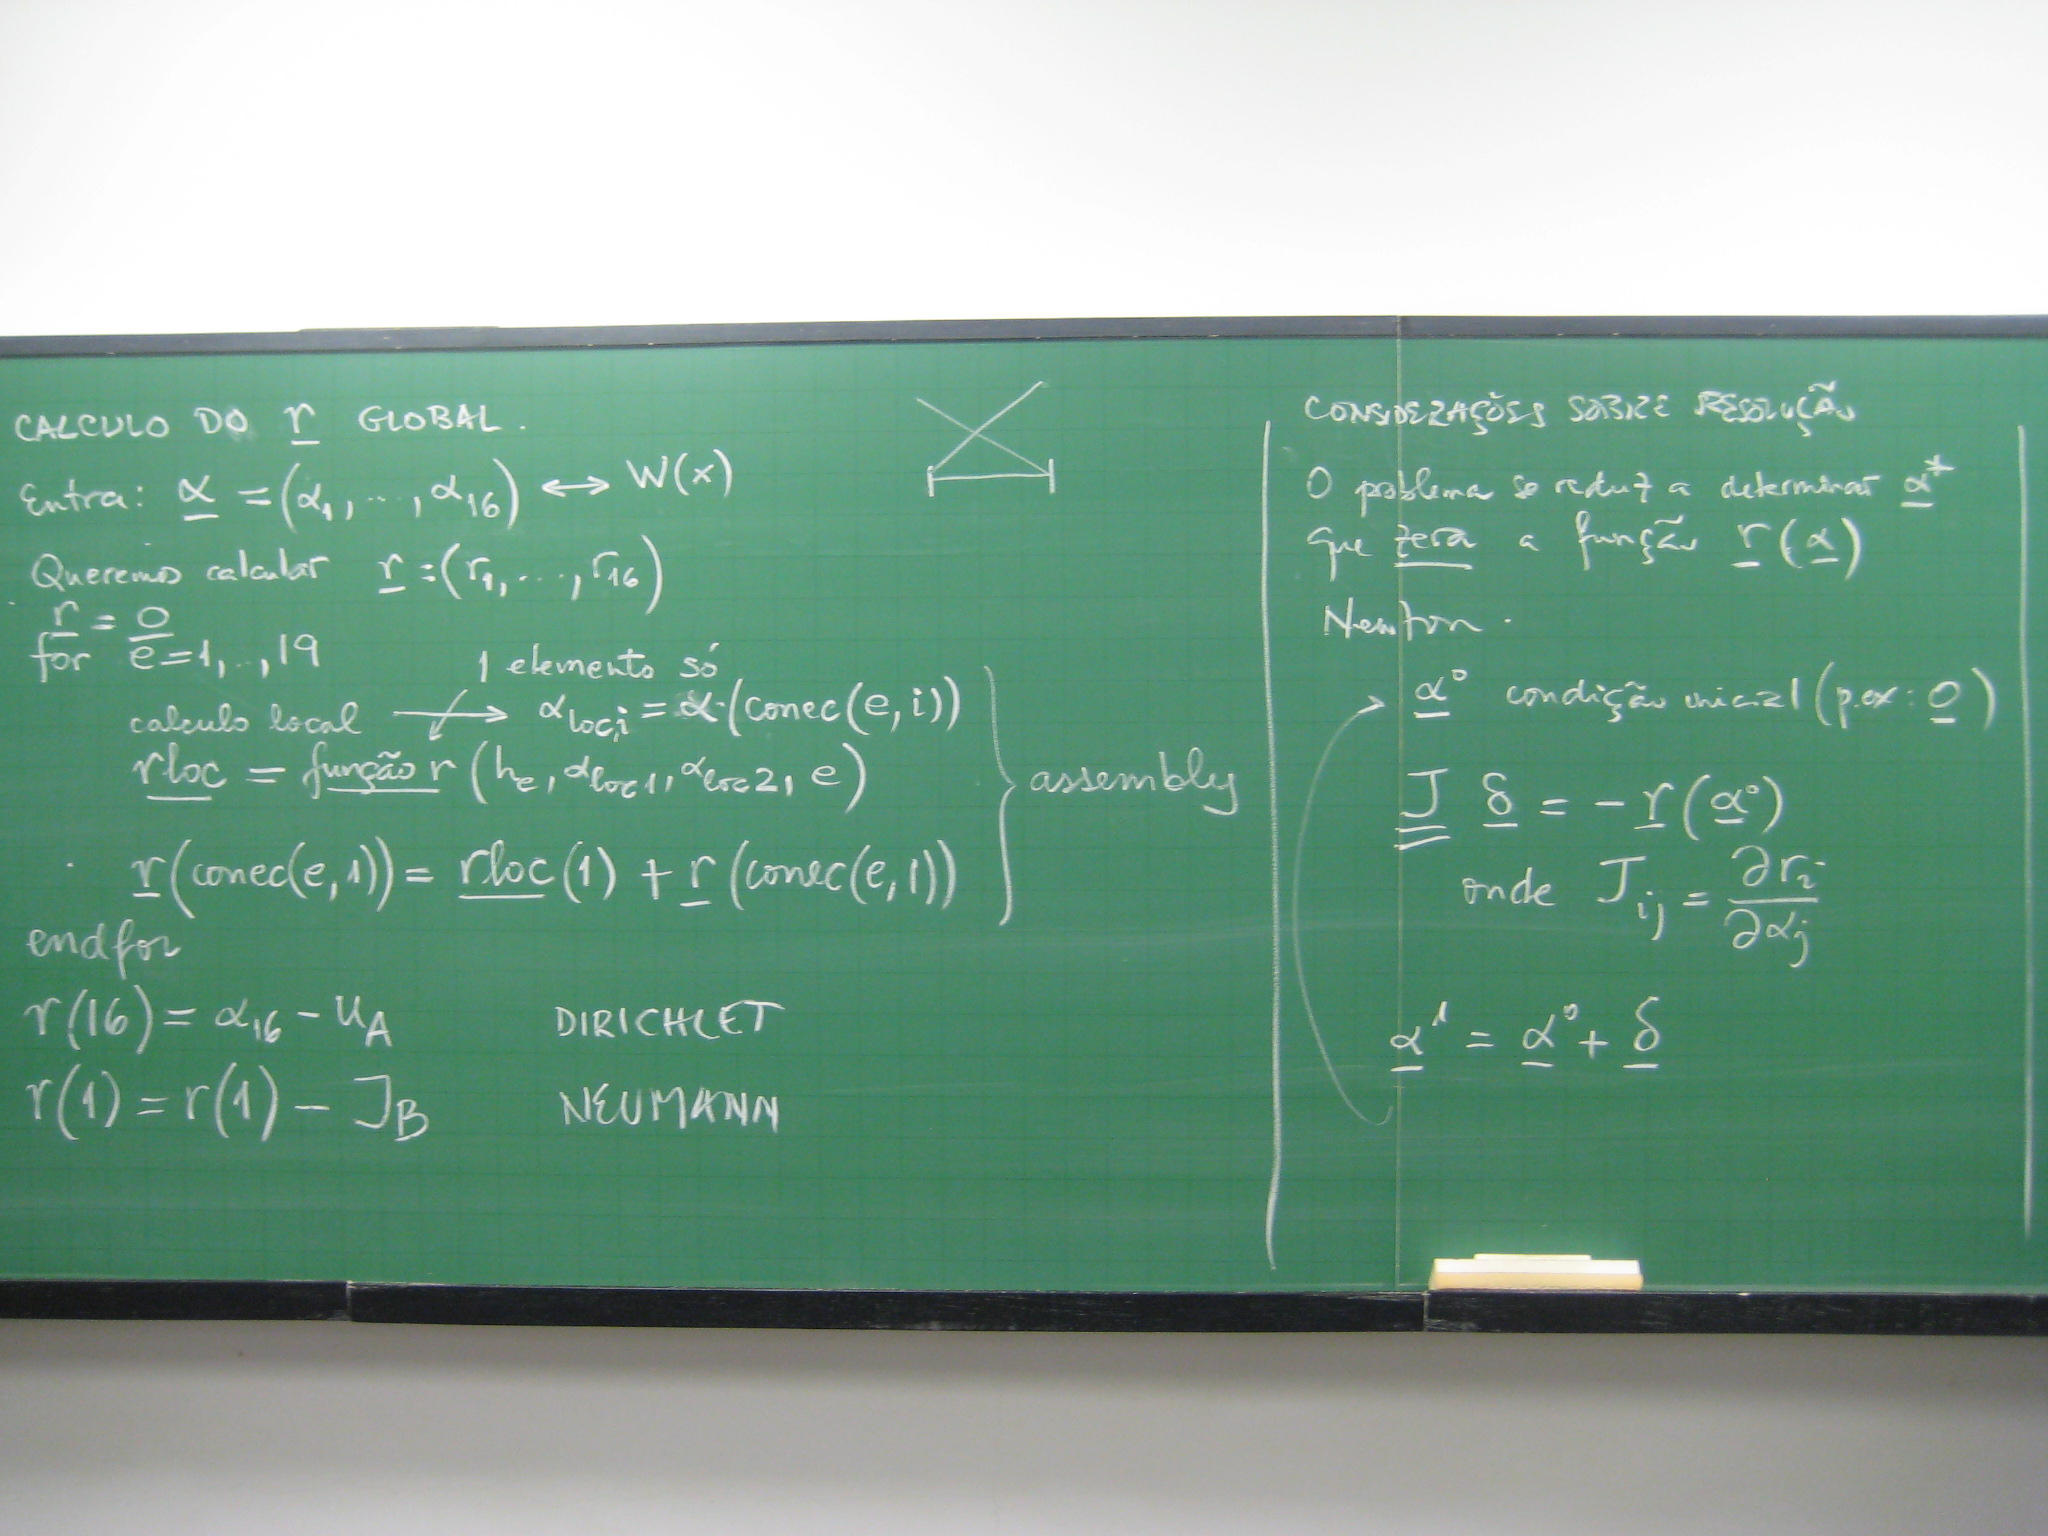 CALCULO DO r GLOBAL.
Entra: α = (α₁, ..., α₁₆) ↔ W(x)
Queremos calcular r = (r₁, ..., r₁₆)
r = 0
for e=1,..,19
1 elemento só
calculo local → α_loc,i = α(conec(e,i))
rloc = função r (h_e, α_loc1, α_loc2, e)
r(conec(e,1)) = rloc(1) + r(conec(e,1))
assembly
endfor
r(16) = α₁₆ - u_A DIRICHLET
r(1) = r(1) - J_B NEUMANN
CONSIDERAÇÕES SOBRE RESOLUÇÃO
O problema se reduz a determinar α*
que zera a função r(α)
Newton.
α⁰ condição inicial (p.ex: 0)
J δ = - r(α⁰)
onde J_ij = ∂r_i/∂α_j
α¹ = α⁰ + δ